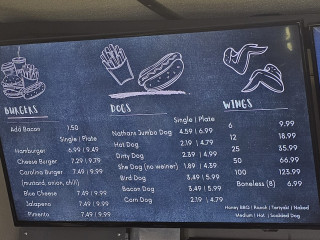 BURGERS
Add Bacon 1.50
Single | Plate
Hamburger 6.99 | 9.49
Cheese Burger 7.29 | 9.79
Carolina Burger 7.49 | 9.99
(mustard, onion, chili)
Blue Cheese 7.49 | 9.99
Jalapeno 7.49 | 9.99
Pimento 7.49 | 9.99
DOGS
Single | Plate
Nathans Jumbo Dog 4.59 | 6.99
Hot Dog 2.19 | 4.79
Dirty Dog 2.39 | 4.99
She Dog (no weiner) 1.89 | 4.39
Bird Dog 3.49 | 5.99
Bacon Dog 3.49 | 5.99
Corn Dog 2.19 | 4.79
WINGS
6 9.99
12 18.99
25 35.99
50 66.99
100 123.99
Boneless (8) 6.99
Honey BBQ | Ranch | Teriyaki | Naked
Medium | Hot |